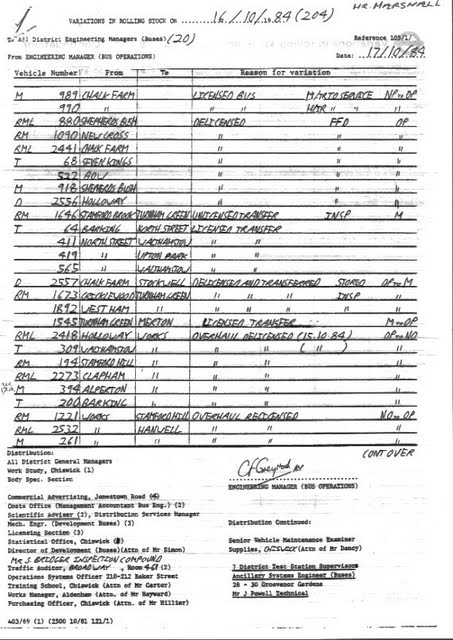 1
VARIATIONS IN ROLLING STOCK ON 16/10/1984 (204)
MR. MARSHALL
To All District Engineering Managers (Buses) (20)
Reference 103/1/
From ENGINEERING MANAGER (BUS OPERATIONS)
Date: 17/10/84
Vehicle Number From To Reason for variation
M 989 CHALK FARM LICENSED BUS NP TO OP
990 " " " "
RML 880 SHEPHERDS BUSH DELICENSED FFD OP
RM 1090 NEW CROSS " " "
RML 2441 CHALK FARM " " "
T 68 SEVEN KINGS " " "
522 BOW " " "
M 918 SHEPHERDS BUSH " " "
D 2556 HOLLOWAY " " "
RM 1646 STAMFORD BROOK TURNHAM GREEN UNLICENSED TRANSFER INSP M
T 64 BARKING NORTH STREET LICENSED TRANSFER
411 NORTH STREET WALTHAMSTOW " "
419 " UPTON PARK " "
565 " WALTHAMSTOW " "
D 2557 CHALK FARM STOCKWELL DELICENSED AND TRANSFERRED STORED OP TO M
RM 1673 CRICKLEWOOD TURNHAM GREEN " " INSP "
1892 WEST HAM " " " " "
1545 TURNHAM GREEN MERTON LICENSED TRANSFER M TO OP
RML 2418 HOLLOWAY WORKS OVERHAUL DELICENSED (15.10.84) OP TO NO
T 309 WALTHAMSTOW " " " ( " ) "
RM 194 STAMFORD HILL " " " "
RML 2273 CLAPHAM " " " "
M 394 ALPERTON " " " "
T 200 BARKING " " " "
RM 1221 WORKS STAMFORD HILL OVERHAUL RELICENSED NO TO OP
RML 2532 " HANWELL " " "
M 261 " " " " "
CONT OVER
Distribution:
All District General Managers
Work Study, Chiswick (1)
Body Spec. Section
ENGINEERING MANAGER (BUS OPERATIONS)
Commercial Advertising, Jamestown Road
Costs Office (Management Accountant Bus Eng.) (2)
Scientific Adviser (2), Distribution Services Manager
Mech. Engr. (Development Buses) (3)
Licensing Section (3)
Statistical Office, Chiswick
Director of Development (Buses)(Attn of Mr Simon)
MR J. BRIDGER INSPECTION COMPOUND
Traffic Auditor, BROADWAY, Room (2)
Operations Systems Officer 210-212 Baker Street
Training School, Chiswick (Attn of Mr Carter)
Works Manager, Aldenham (Attn of Mr Hayward)
Purchasing Officer, Chiswick (Attn. of Mr Hillier)
Distribution Continued:
Senior Vehicle Maintenance Examiner
Supplies, CHISWICK (Attn of Mr Dancy)
7 District Test Station Supervisors
Ancillary Systems Engineer (Buses)
28 - 30 Grosvenor Gardens
Mr J Powell Technical
403/69 (1) (2500 10/81 121/1)